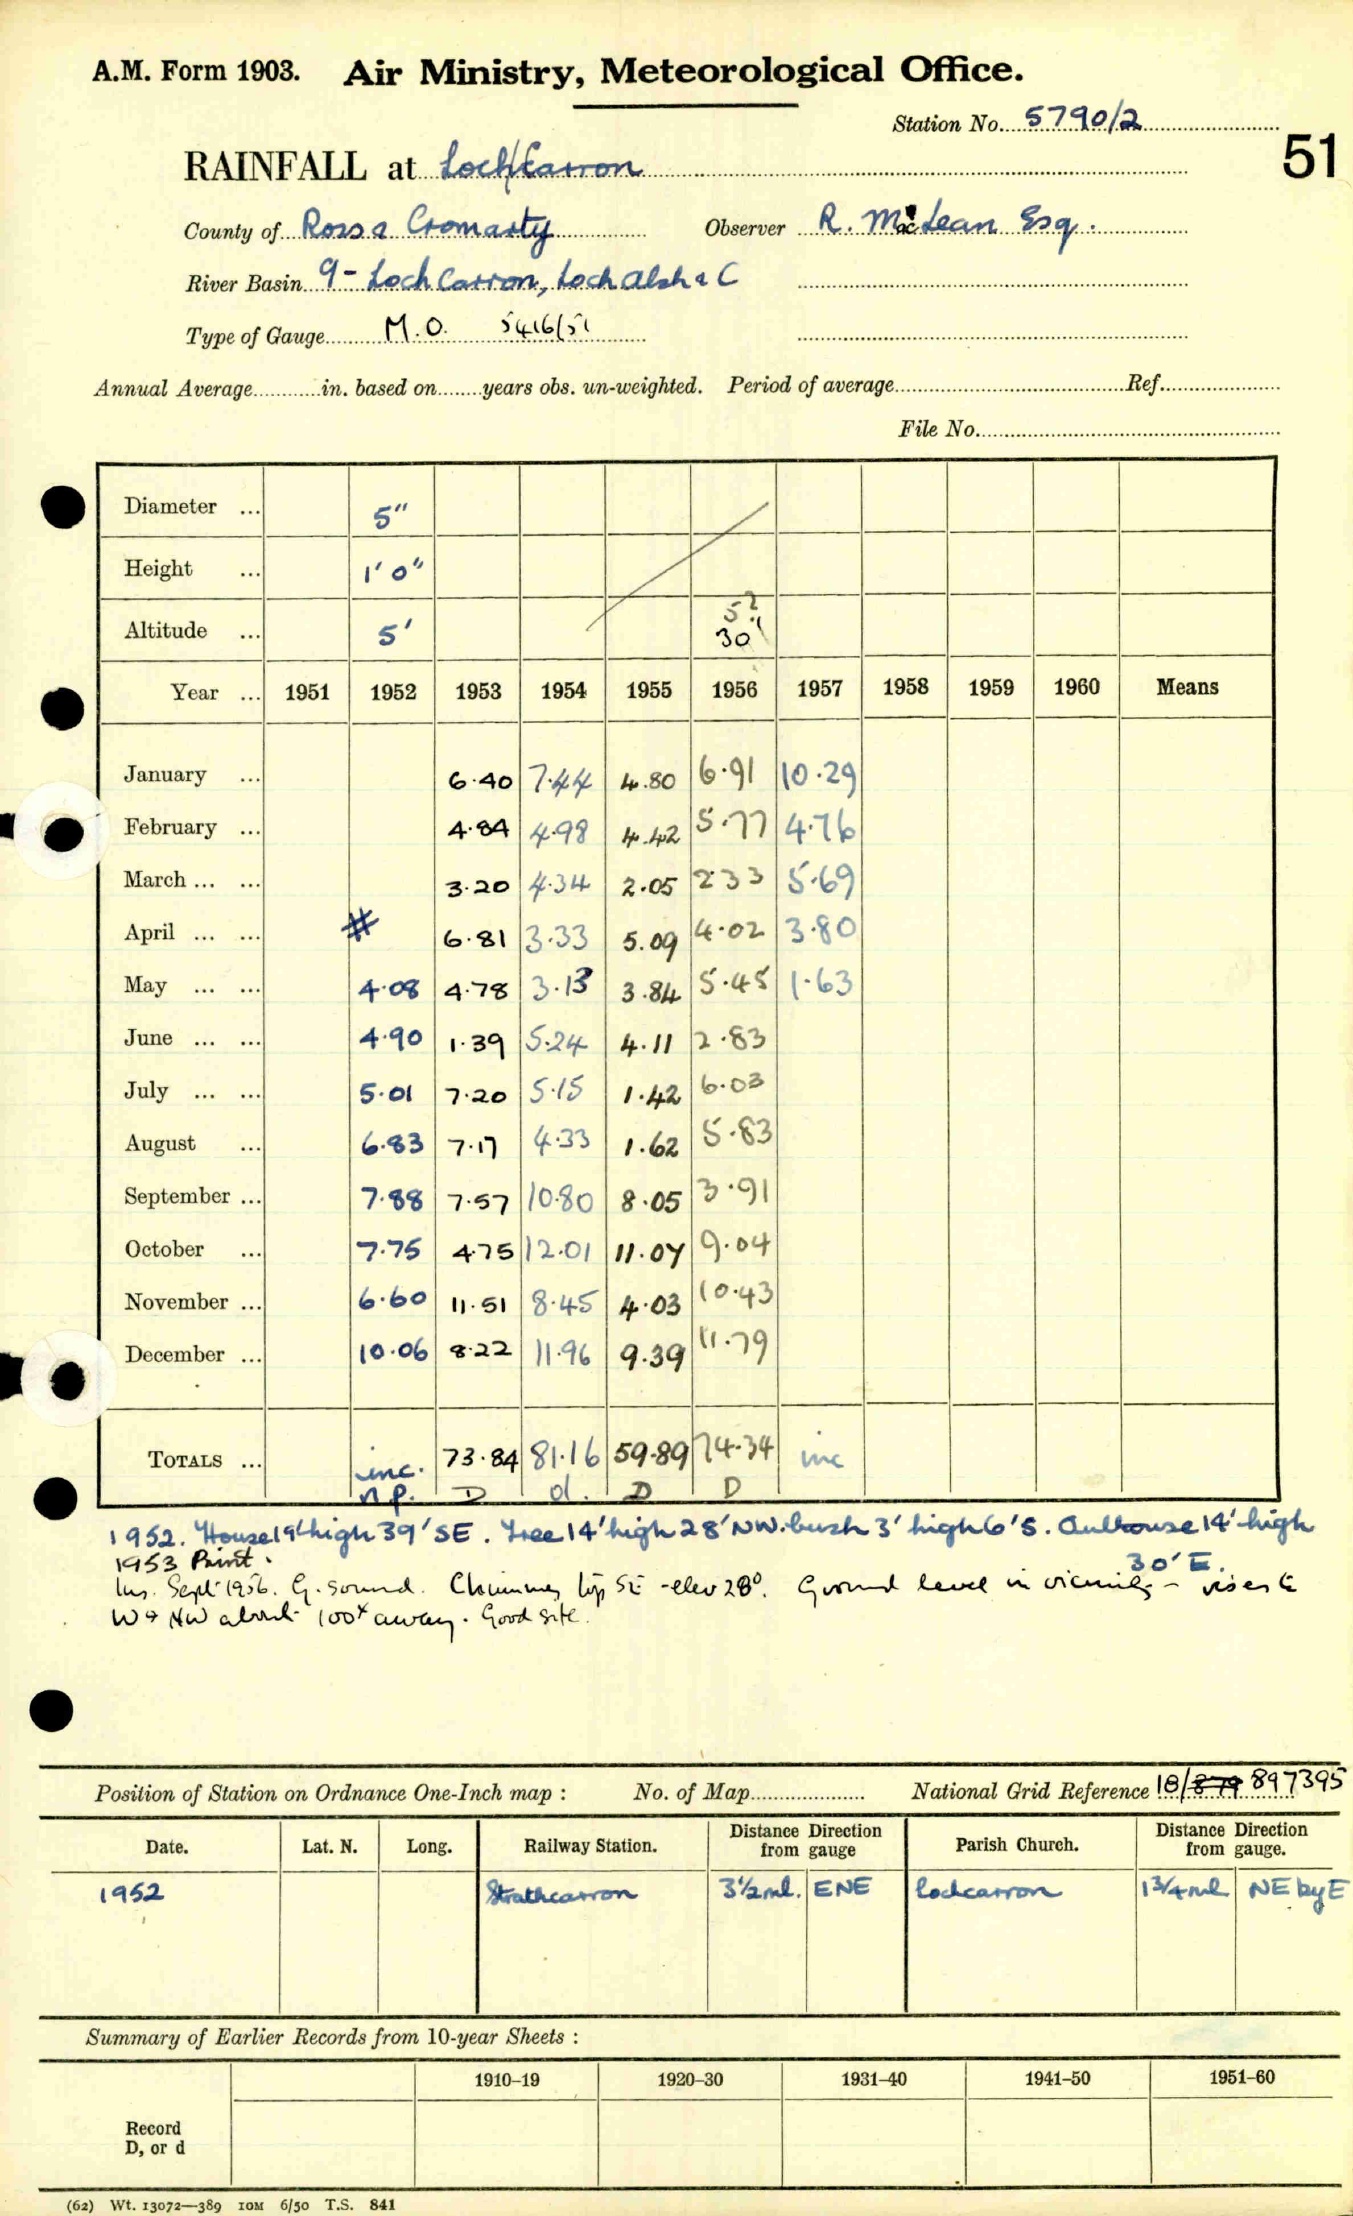 A.M. Form 1903. Air Ministry, Meteorological Office.
Station No. 5790/2
51
RAINFALL at Loch/Carron
County of Ross & Cromarty Observer R. MacLean Esq.
River Basin 9- Loch Carron, Loch Alsh & C
Type of Gauge M.O. 5416/51
Annual Average in. based on years obs. un-weighted. Period of average Ref.
File No.
Diameter ... 5"
Height ... 1' 0"
Altitude ... 5' 5? 30'
Year ... 1951 1952 1953 1954 1955 1956 1957 1958 1959 1960 Means
January ... 6.40 7.44 4.80 6.91 10.29
February ... 4.84 4.98 4.42 5.77 4.76
March ... ... 3.20 4.34 2.05 2.33 5.69
April ... ... # 6.81 3.33 5.09 4.02 3.80
May ... ... 4.08 4.78 3.13 3.84 5.45 1.63
June ... ... 4.90 1.39 5.24 4.11 2.83
July ... ... 5.01 7.20 5.15 1.42 6.03
August ... 6.83 7.17 4.33 1.62 5.83
September ... 7.88 7.57 10.80 8.05 3.91
October ... 7.75 4.75 12.01 11.07 9.04
November ... 6.60 11.51 8.45 4.03 10.43
December ... 10.06 8.22 11.96 9.39 11.79
TOTALS ... inc. 73.84 81.16 59.89 74.34 inc
n.p. D d. D D
1952. House 19' high 39' SE. Tree 14' high 28' NW. bush 3' high 6' S. Outhouse 14' high
30' E.
1953 Print.
Ins. Sept 1956. G. sound. Chimney top SE - elev 28°. Ground level in vicinity - rises to
W & NW about 100x away. Good site.
Position of Station on Ordnance One-Inch map : No. of Map National Grid Reference 18/879 897395
Date. Lat. N. Long. Railway Station. Distance from Direction gauge Parish Church. Distance from Direction gauge.
1952 Strathcarron 3½ ml. ENE Lochcarron 1¾ ml NE by E
Summary of Earlier Records from 10-year Sheets :
1910–19 1920–30 1931–40 1941–50 1951–60
Record
D, or d
(62) Wt. 13072—389 10M 6/50 T.S. 841